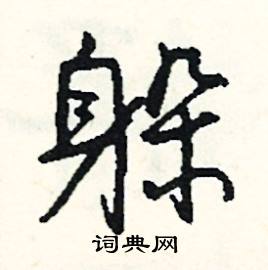 躲
词典网